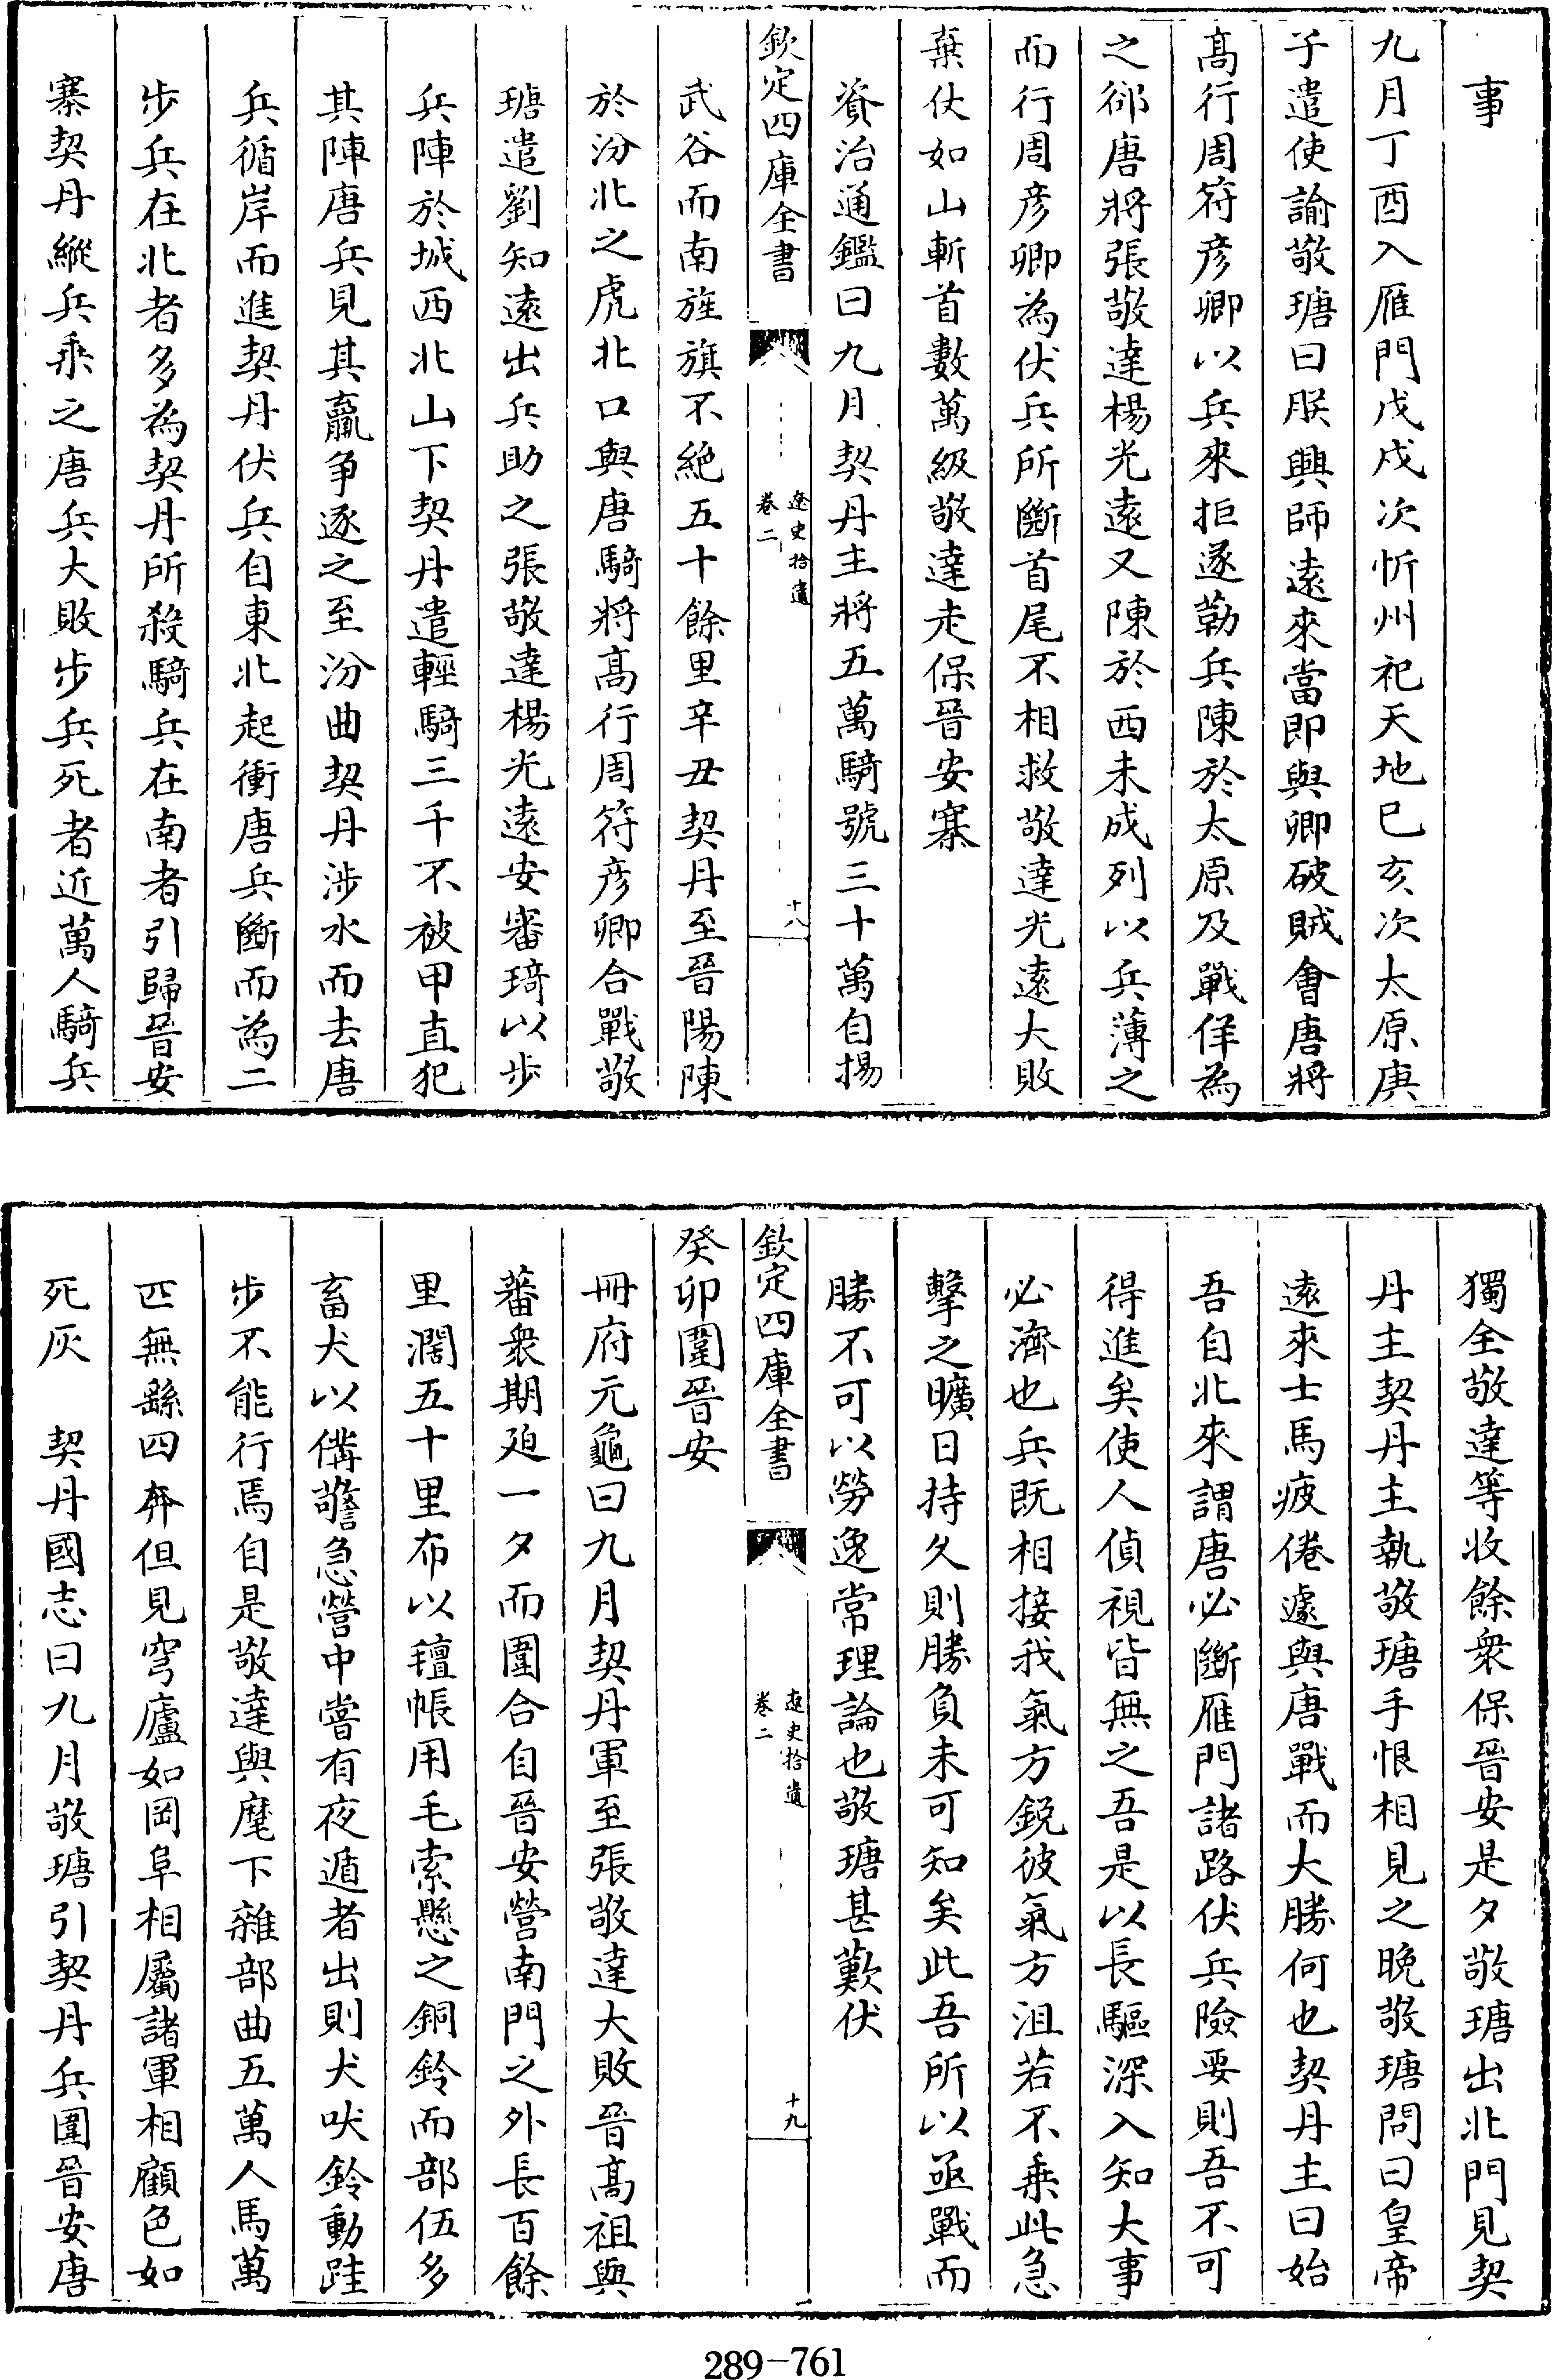 事
九月丁酉入雁門戊戌次忻州祀天地已亥次太原庚
子遣使諭敬瑭曰朕興師遠來當即與卿破賊會唐將
髙行周符彦卿以兵來拒遂勒兵陳於太原及戰佯為
之郤唐將張敬達楊光遠又陳於西未成列以兵薄之
而行周彦卿為伏兵所斷首尾不相救敬達光遠大敗
棄仗如山斬首數萬級敬達走保晉安寨
資治通鑑曰九月契丹主將五萬騎號三十萬自揚
欽定四庫全書
遼史拾遺
卷二
十八
武谷而南旌旗不絶五十餘里辛丑契丹至晉陽陳
於汾北之虎北口與唐騎將髙行周符彦卿合戰敬
瑭遣劉知遠出兵助之張敬達楊光遠安審琦以步
兵陣於城西北山下契丹遣輕騎三千不被甲直犯
其陣唐兵見其羸争逐之至汾曲契丹涉水而去唐
兵循岸而進契丹伏兵自東北起衝唐兵斷而為二
步兵在北者多為契丹所殺騎兵在南者引歸晉安
寨契丹縱兵乘之唐兵大敗步兵死者近萬人騎兵
獨全敬達等收餘衆保晉安是夕敬瑭出北門見契
丹主契丹主執敬瑭手恨相見之晚敬瑭問曰皇帝
遠來士馬疲倦遽與唐戰而大勝何也契丹主曰始
吾自北來謂唐必斷雁門諸路伏兵險要則吾不可
得進矣使人偵視皆無之吾是以長驅深入知大事
必濟也兵既相接我氣方鋭彼氣方沮若不乘此急
擊之曠日持久則勝負未可知矣此吾所以亟戰而
勝不可以勞逸常理論也敬瑭甚歎伏
欽定四庫全書
遼史拾遺
卷二
十九
癸卯圍晉安
冊府元龜曰九月契丹軍至張敬達大敗晉髙祖與
蕃衆期廹一夕而圍合自晉安營南門之外長百餘
里濶五十里布以氊帳用毛索懸之銅鈴而部伍多
畜犬以備警急營中嘗有夜遁者出則犬吠鈴動跬
步不能行焉自是敬達與麾下雜部曲五萬人馬萬
匹無繇四奔但見穹廬如岡阜相屬諸軍相顧色如
死灰　契丹國志曰九月敬瑭引契丹兵圍晉安唐
289-761